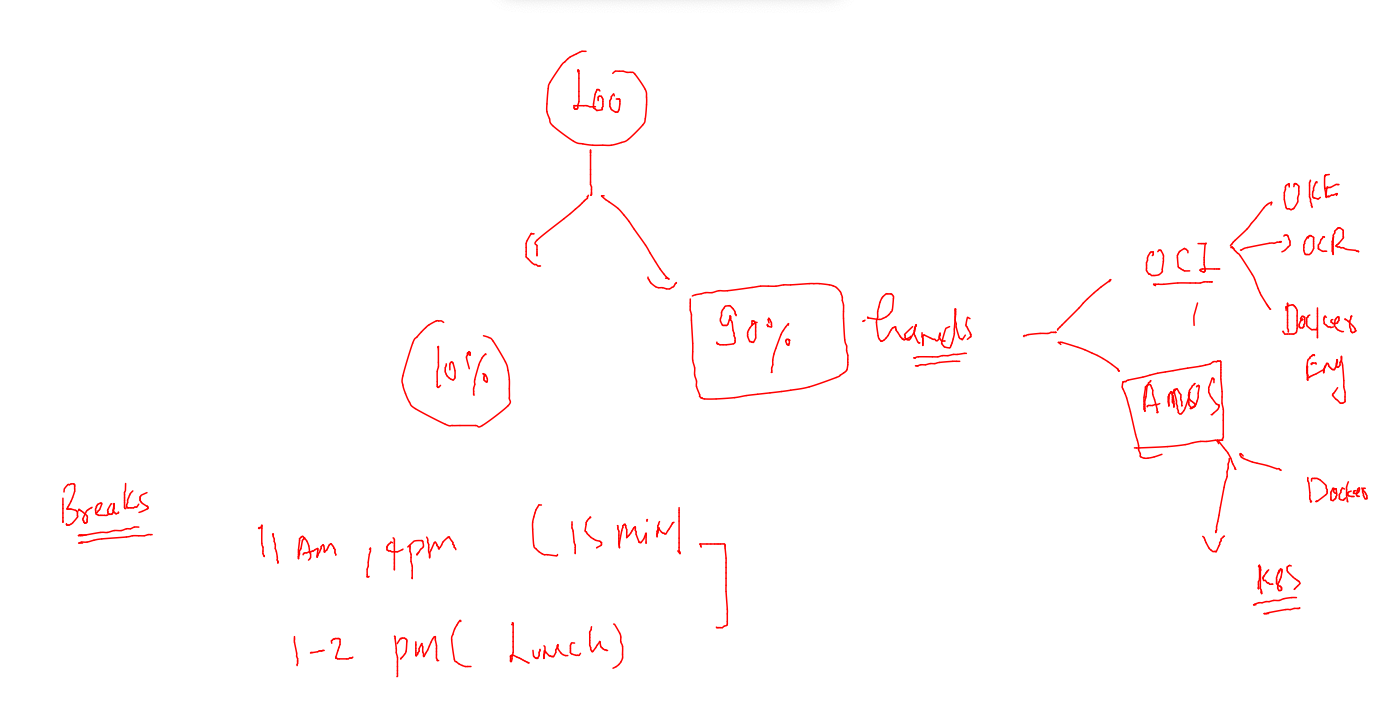 100
10%
90%
hands
OCI
OKE
OCR
Docker
Eng
Docker
K8S
Breaks
11 Am , 4pm (15 min
1-2 pm ( Lunch)